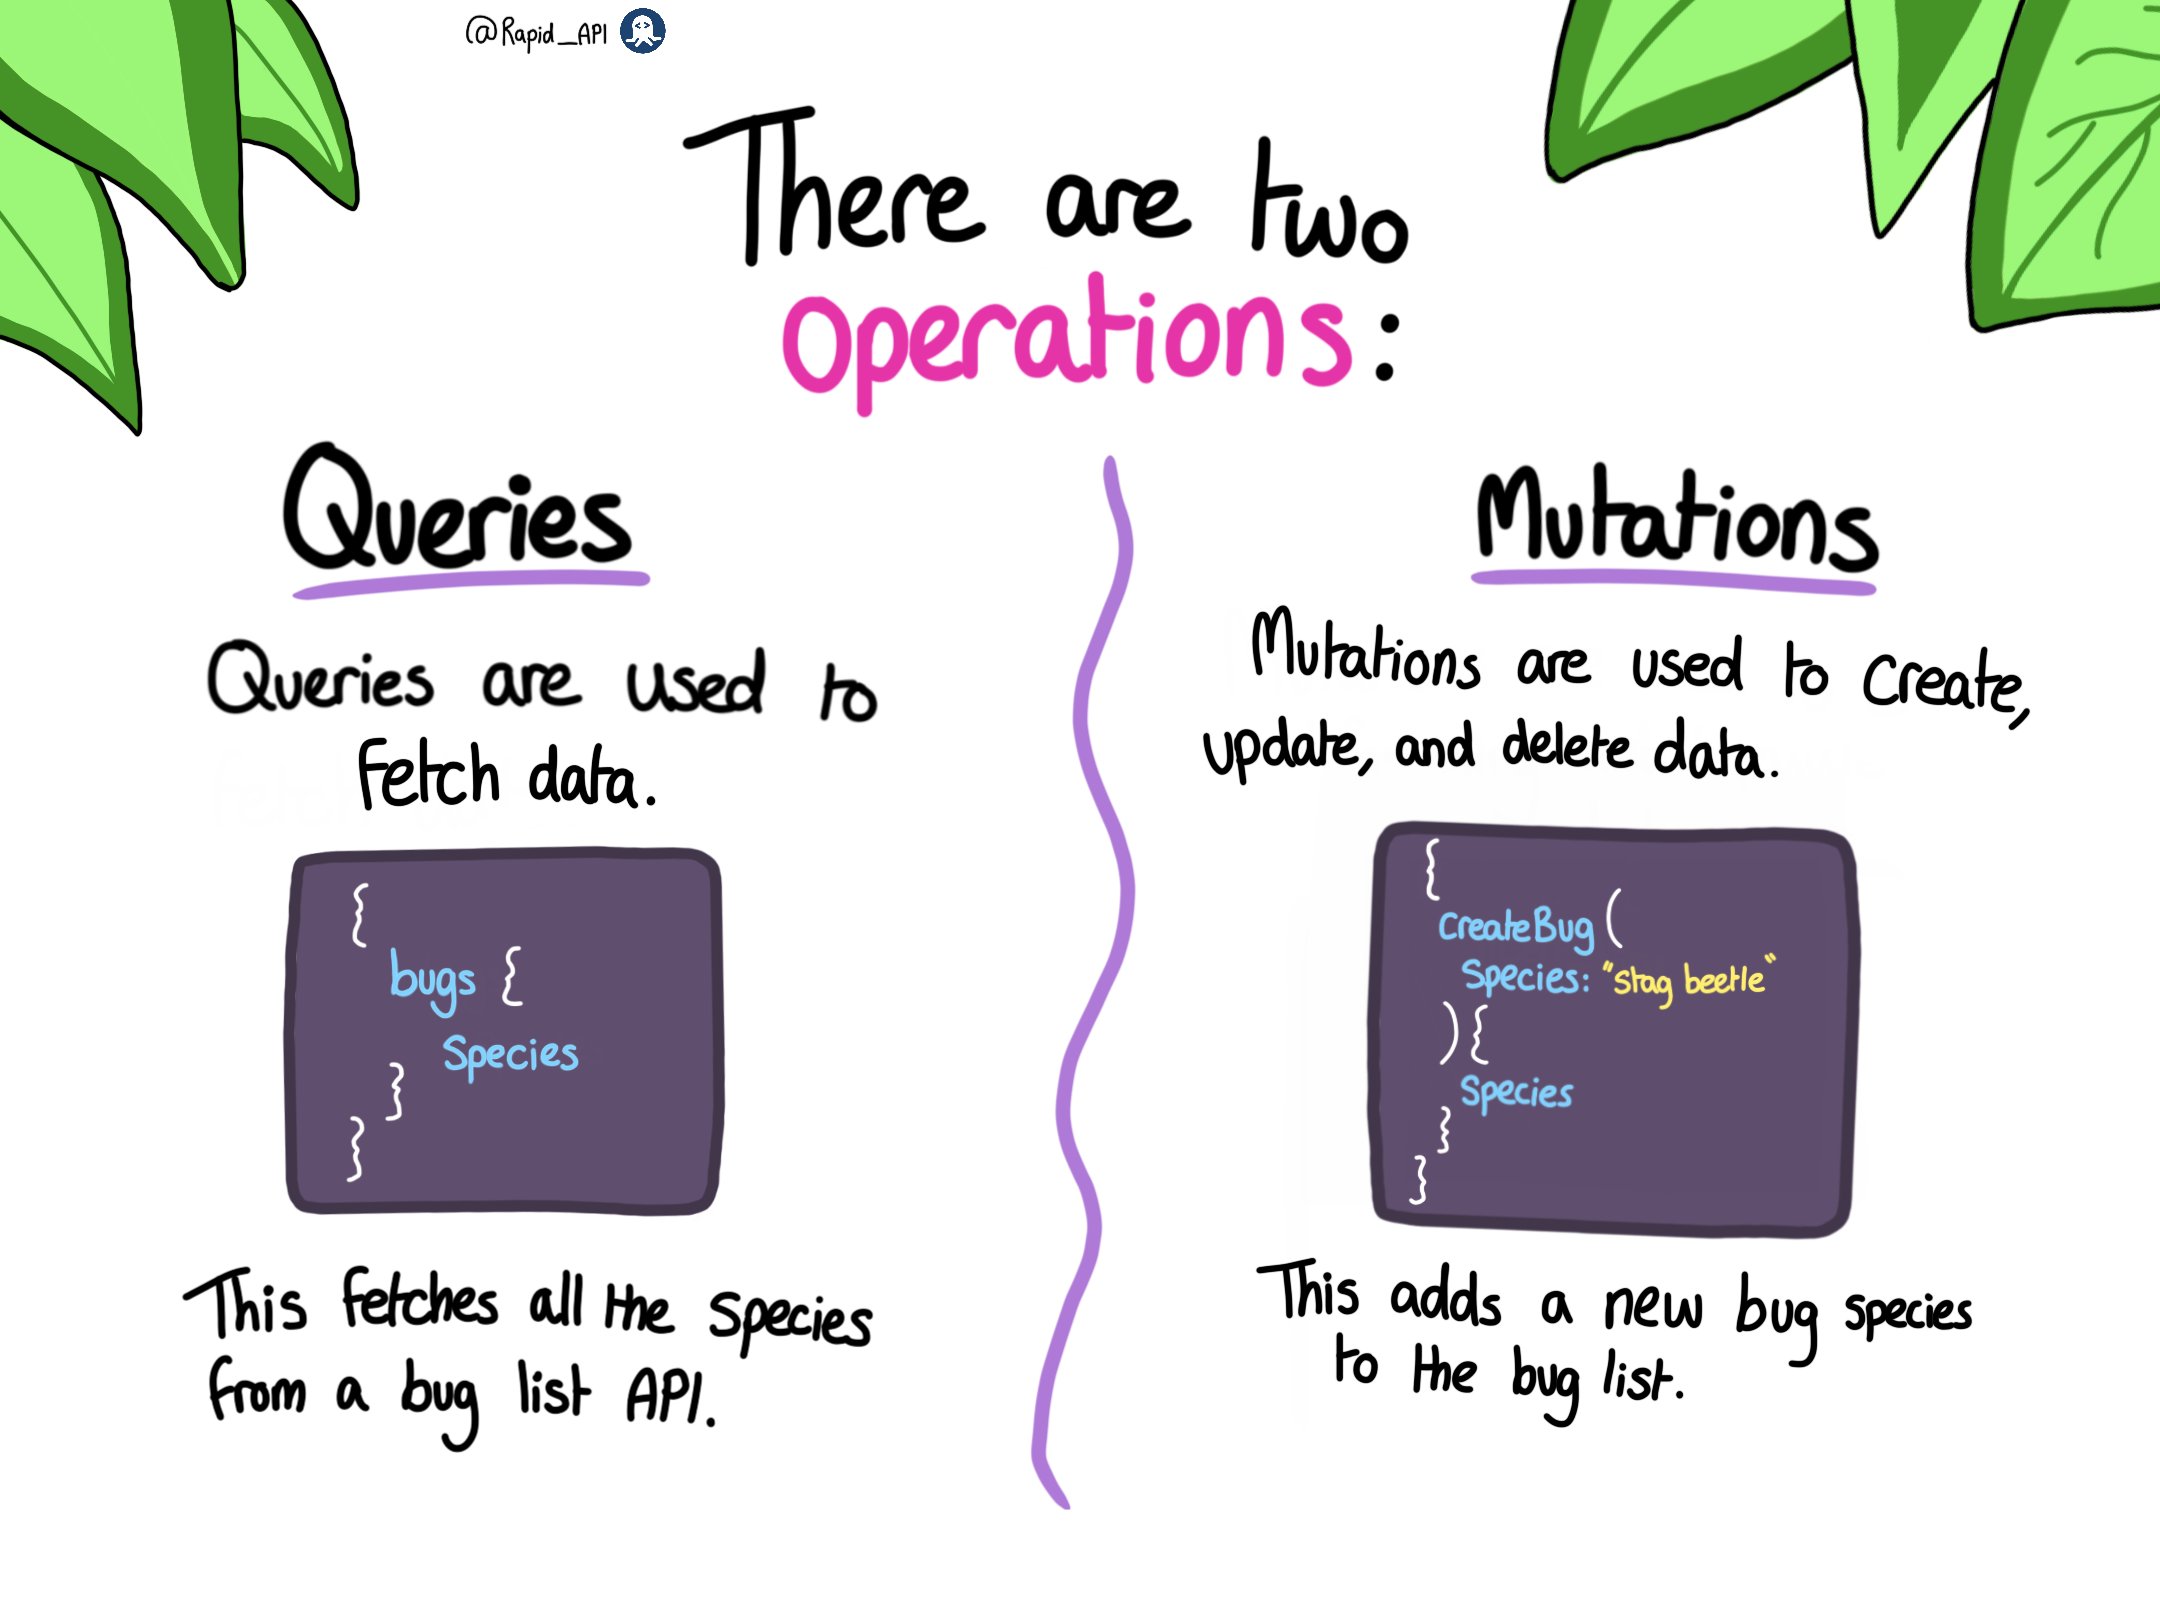 @Rapid_API
There are two
Operations:
Queries
Queries are used to
fetch data.
{
bugs {
Species
}
}
This fetches all the species
from a bug list API.
Mutations
Mutations are used to create,
update, and delete data.
{
createBug (
Species: "stag beetle"
) {
Species
}
}
This adds a new bug species
to the bug list.